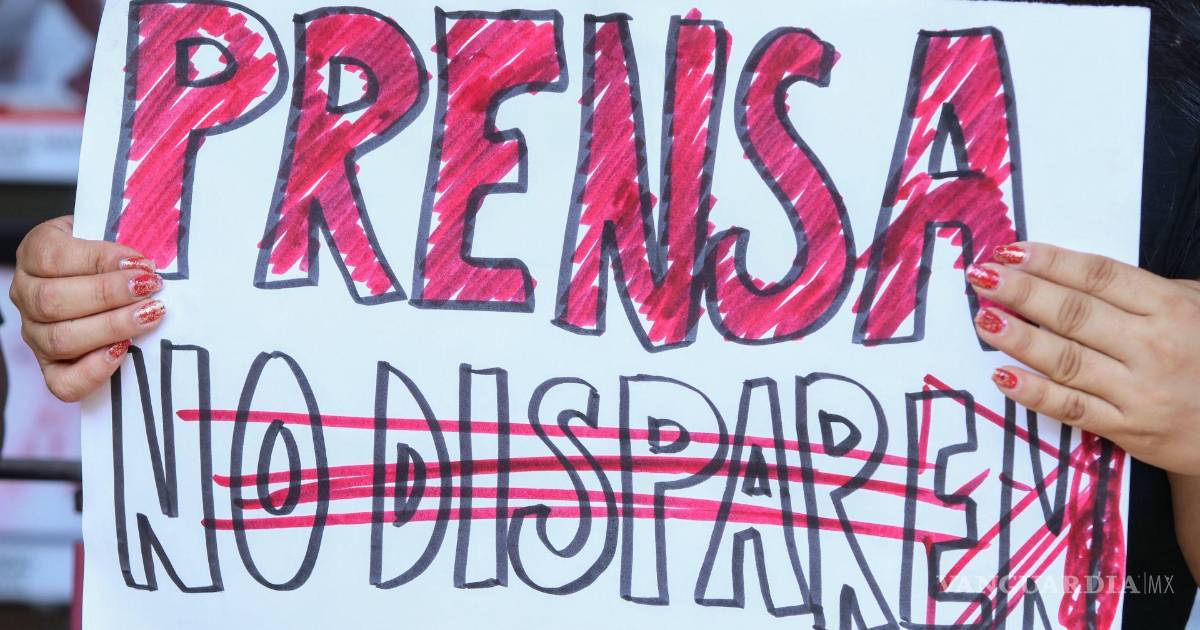 PRENSA
NO DISPAREN
VANGUARDIA|MX